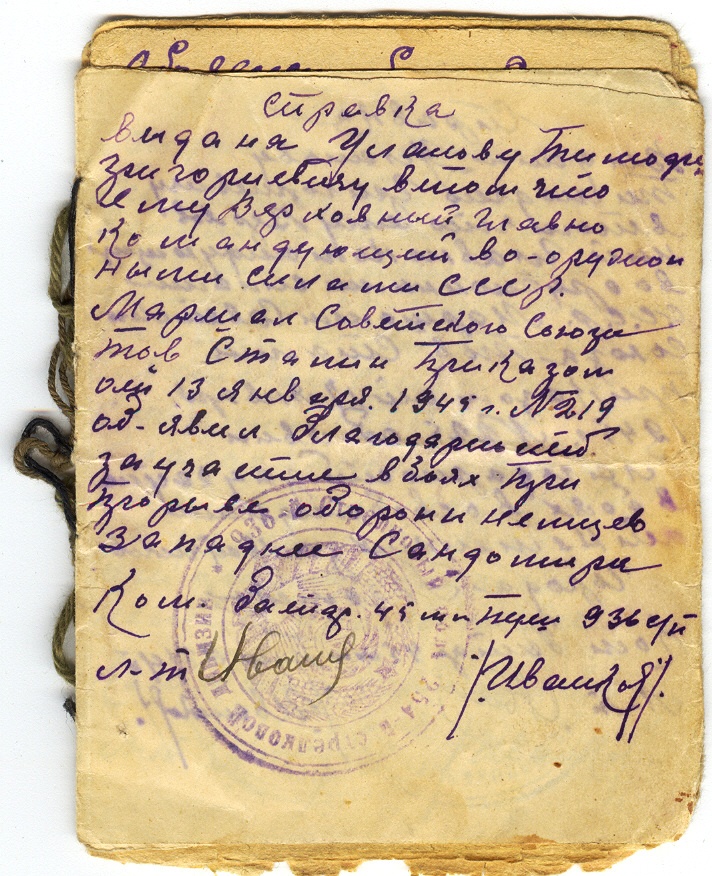 справка
выдана Уланову Тимофе
Григориевичу втом что
ему Верховный Главно
Командующий во-оружон
ными силами СССР.
Маршал Советского Союза
тов Сталин Приказом
от 13 января. 1945 г. №219
об-явил благодарность
за участие в боях При
Прорыве обороны немцев
Западнее Сандомира
Ком. батар. 45 мм Пуш 936 с/п
л-т Иванков
/Иванков/.
254-й стрелковой дивизии